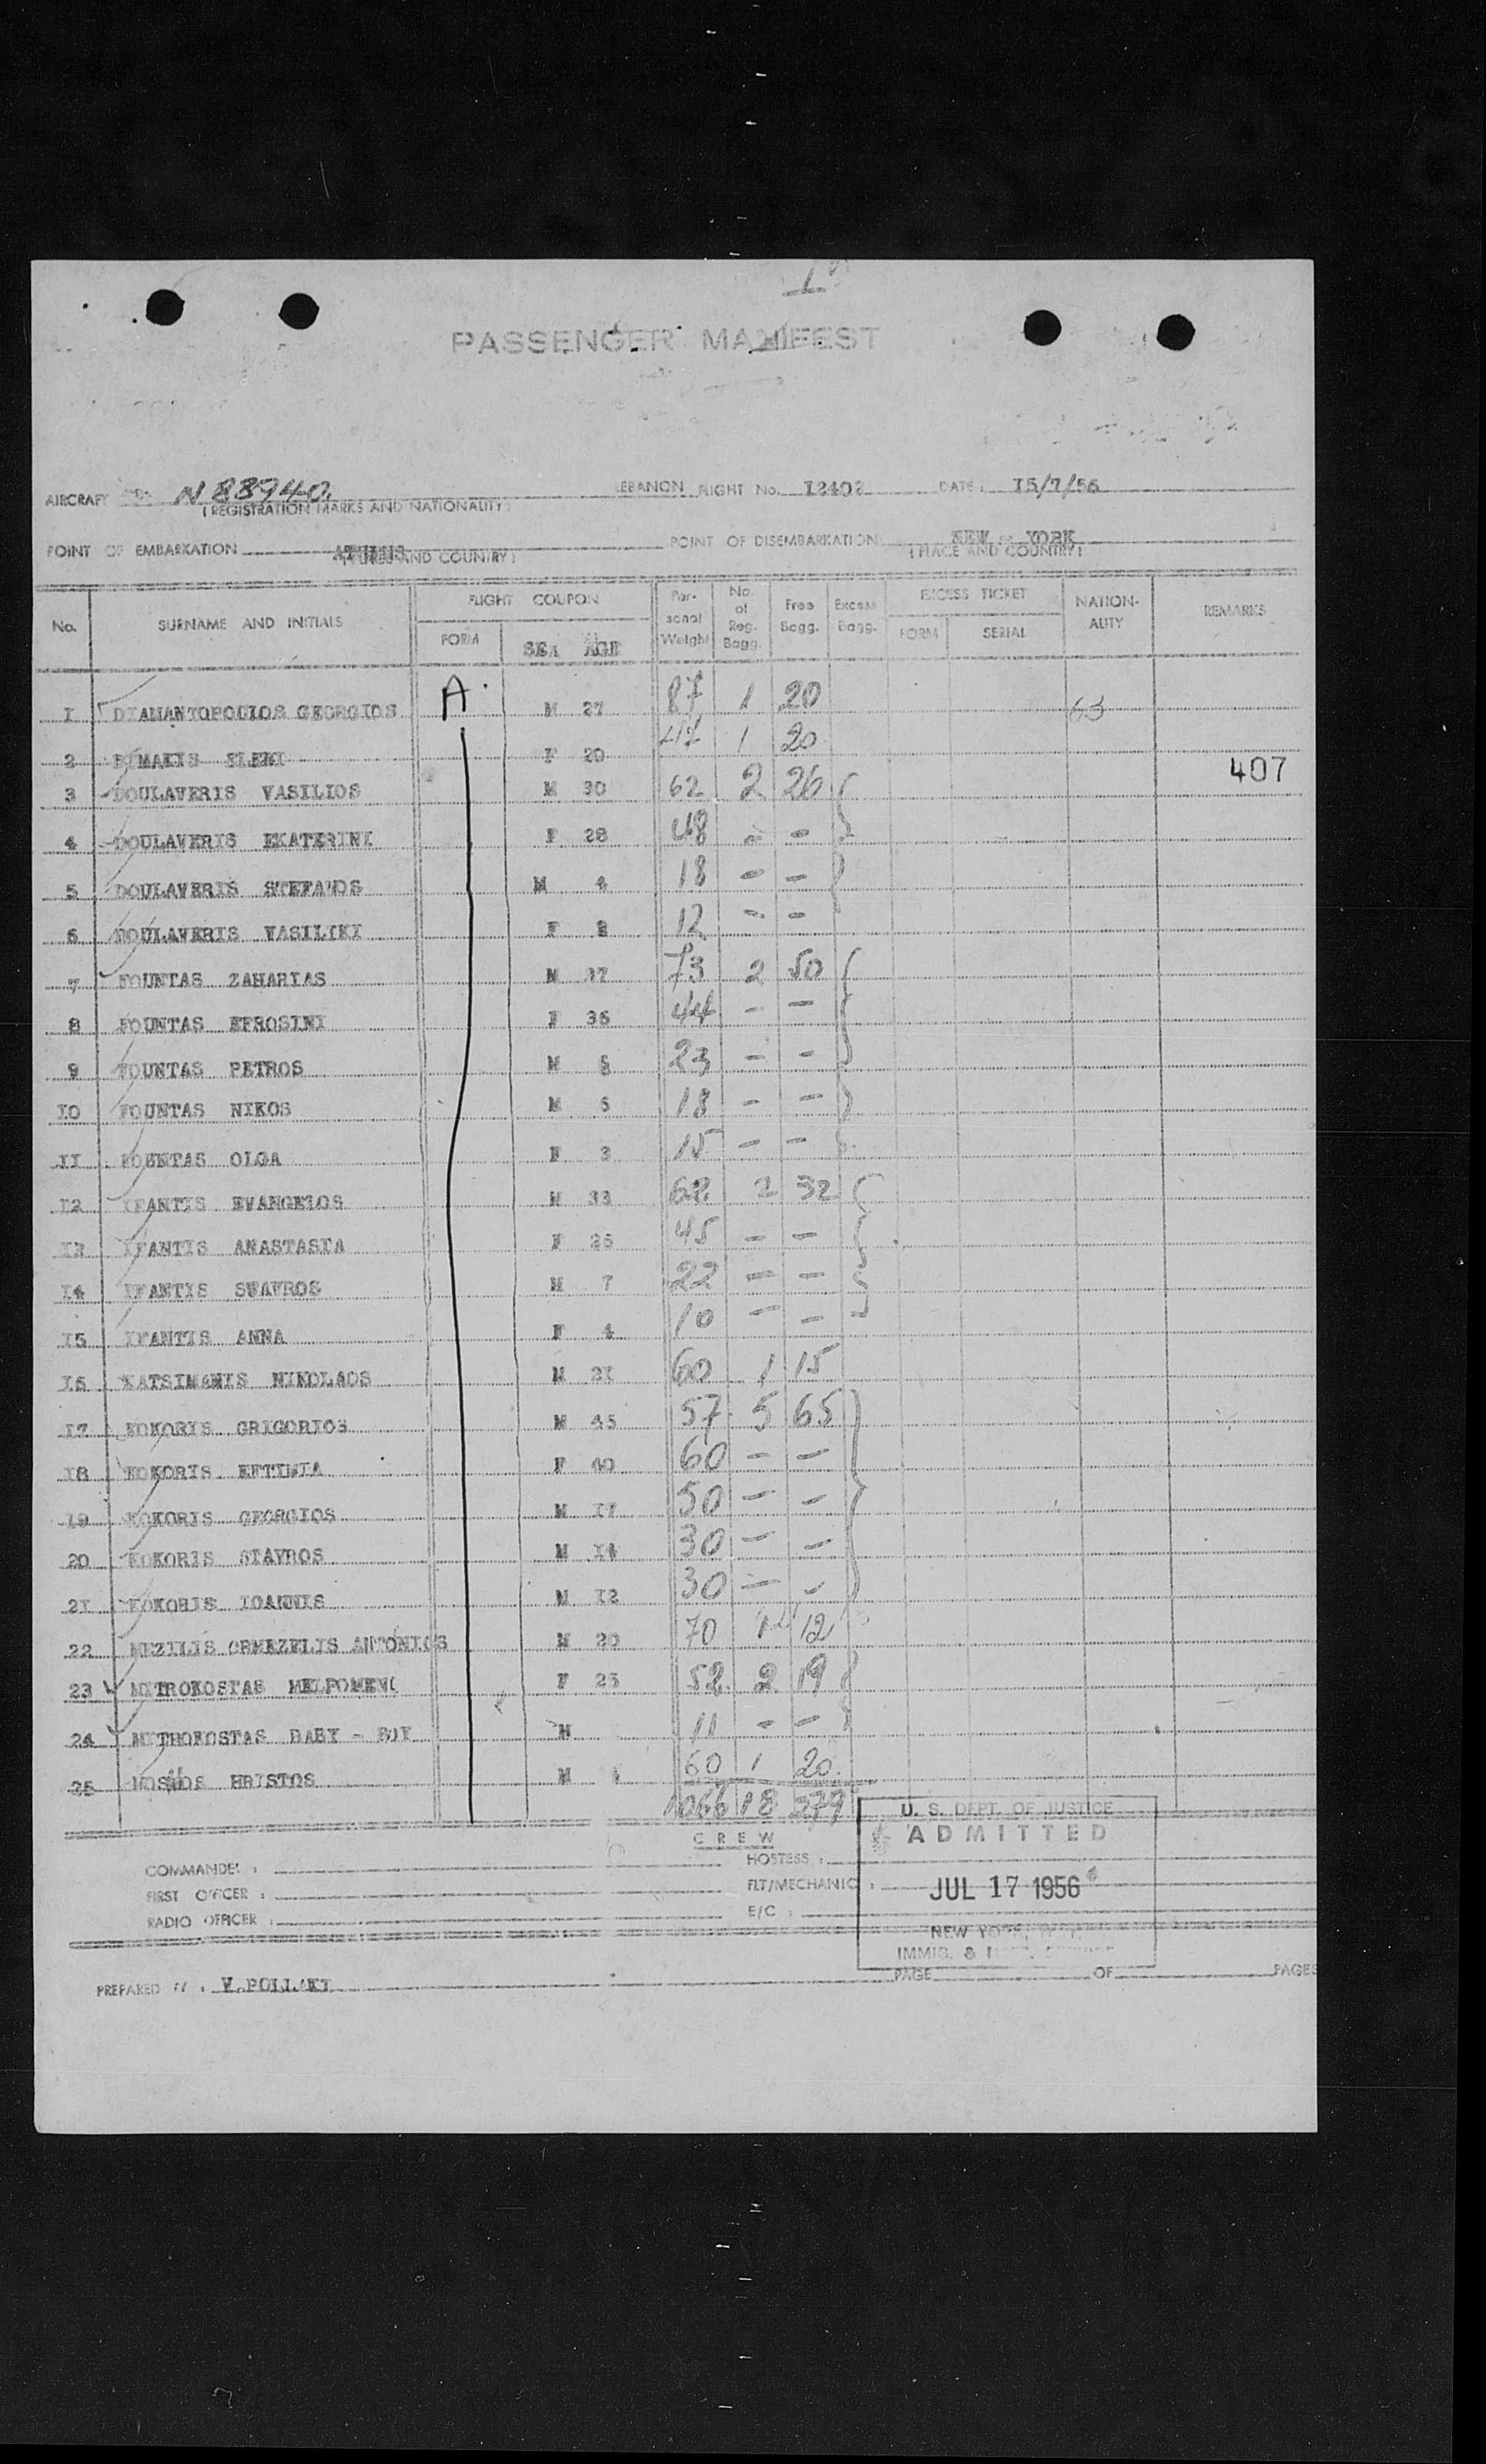 PASSENGER MANIFEST
AIRCRAFT N 88940.
(REGISTRATION MARKS AND NATIONALITY)
LEBANON FLIGHT No. I2402 DATE: I5/7/56
POINT OF EMBARKATION ATHENS
POINT OF DISEMBARKATION NEW - YORK
(PLACE AND COUNTRY) (PLACE AND COUNTRY)
No. SURNAME AND INITIALS FLIGHT COUPON FORM SEX AGE Personal Weight No. of Reg. Bagg. Free Bagg. Excess Bagg. EXCESS TICKET FORM SERIAL NATIONALITY REMARKS
I DIAMANTOPOULOS GEORGIOS A M 27 87 1 20 63
2 ELENI F 20 47 1 20
407
3 DOULAVERIS VASILIOS M 30 62 2 26
4 DOULAVERIS EKATERINI F 28 48 - -
5 DOULAVERIS STEFANOS M 4 18 - -
6 DOULAVERIS VASILIKI F 2 12 - -
7 FOUNTAS ZAHARIAS M 37 73 2 50
8 FOUNTAS EFROSINI F 36 44 - -
9 FOUNTAS PETROS M 23 - -
IO FOUNTAS NIKOS M 6 18 - -
II FOUNTAS OLGA F 3 15 - -
I2 IFANTIS EVANGELOS M 33 62 2 32
I3 IFANTIS ANASTASIA F 26 45 - -
I4 IFANTIS STAVROS M 7 22 - -
I5 IFANTIS ANNA F 4 10 - -
I6 KATSIMANIS NIKOLAOS M 2I 60 1 15
I7 KOKORIS GRIGORIOS M 45 57 5 65
I8 KOKORIS EFTIMIA F 40 60 - -
I9 KOKORIS GEORGIOS M I7 50 - -
20 KOKORIS STAVROS M I4 30 - -
2I KOKORIS IOANNIS M I2 30 - -
22 MEZILIS ORMEZELIS ANTONIOS M 20 70 1 12
23 MITROKOSTAS MELPOMENI F 25 52 2 19
24 MITROKOSTAS BABY - BOY M 11 - -
25 HRISTOS M 60 1 20
1066 18 279
CREW
COMMANDER : HOSTESS :
FIRST OFFICER : FLT/MECHANIC :
RADIO OFFICER : E/C :
U. S. DEPT. OF JUSTICE
ADMITTED
JUL 17 1956
NEW YORK,
IMMIG. &
PREPARED BY : V.POLLAKI PAGE OF PAGES